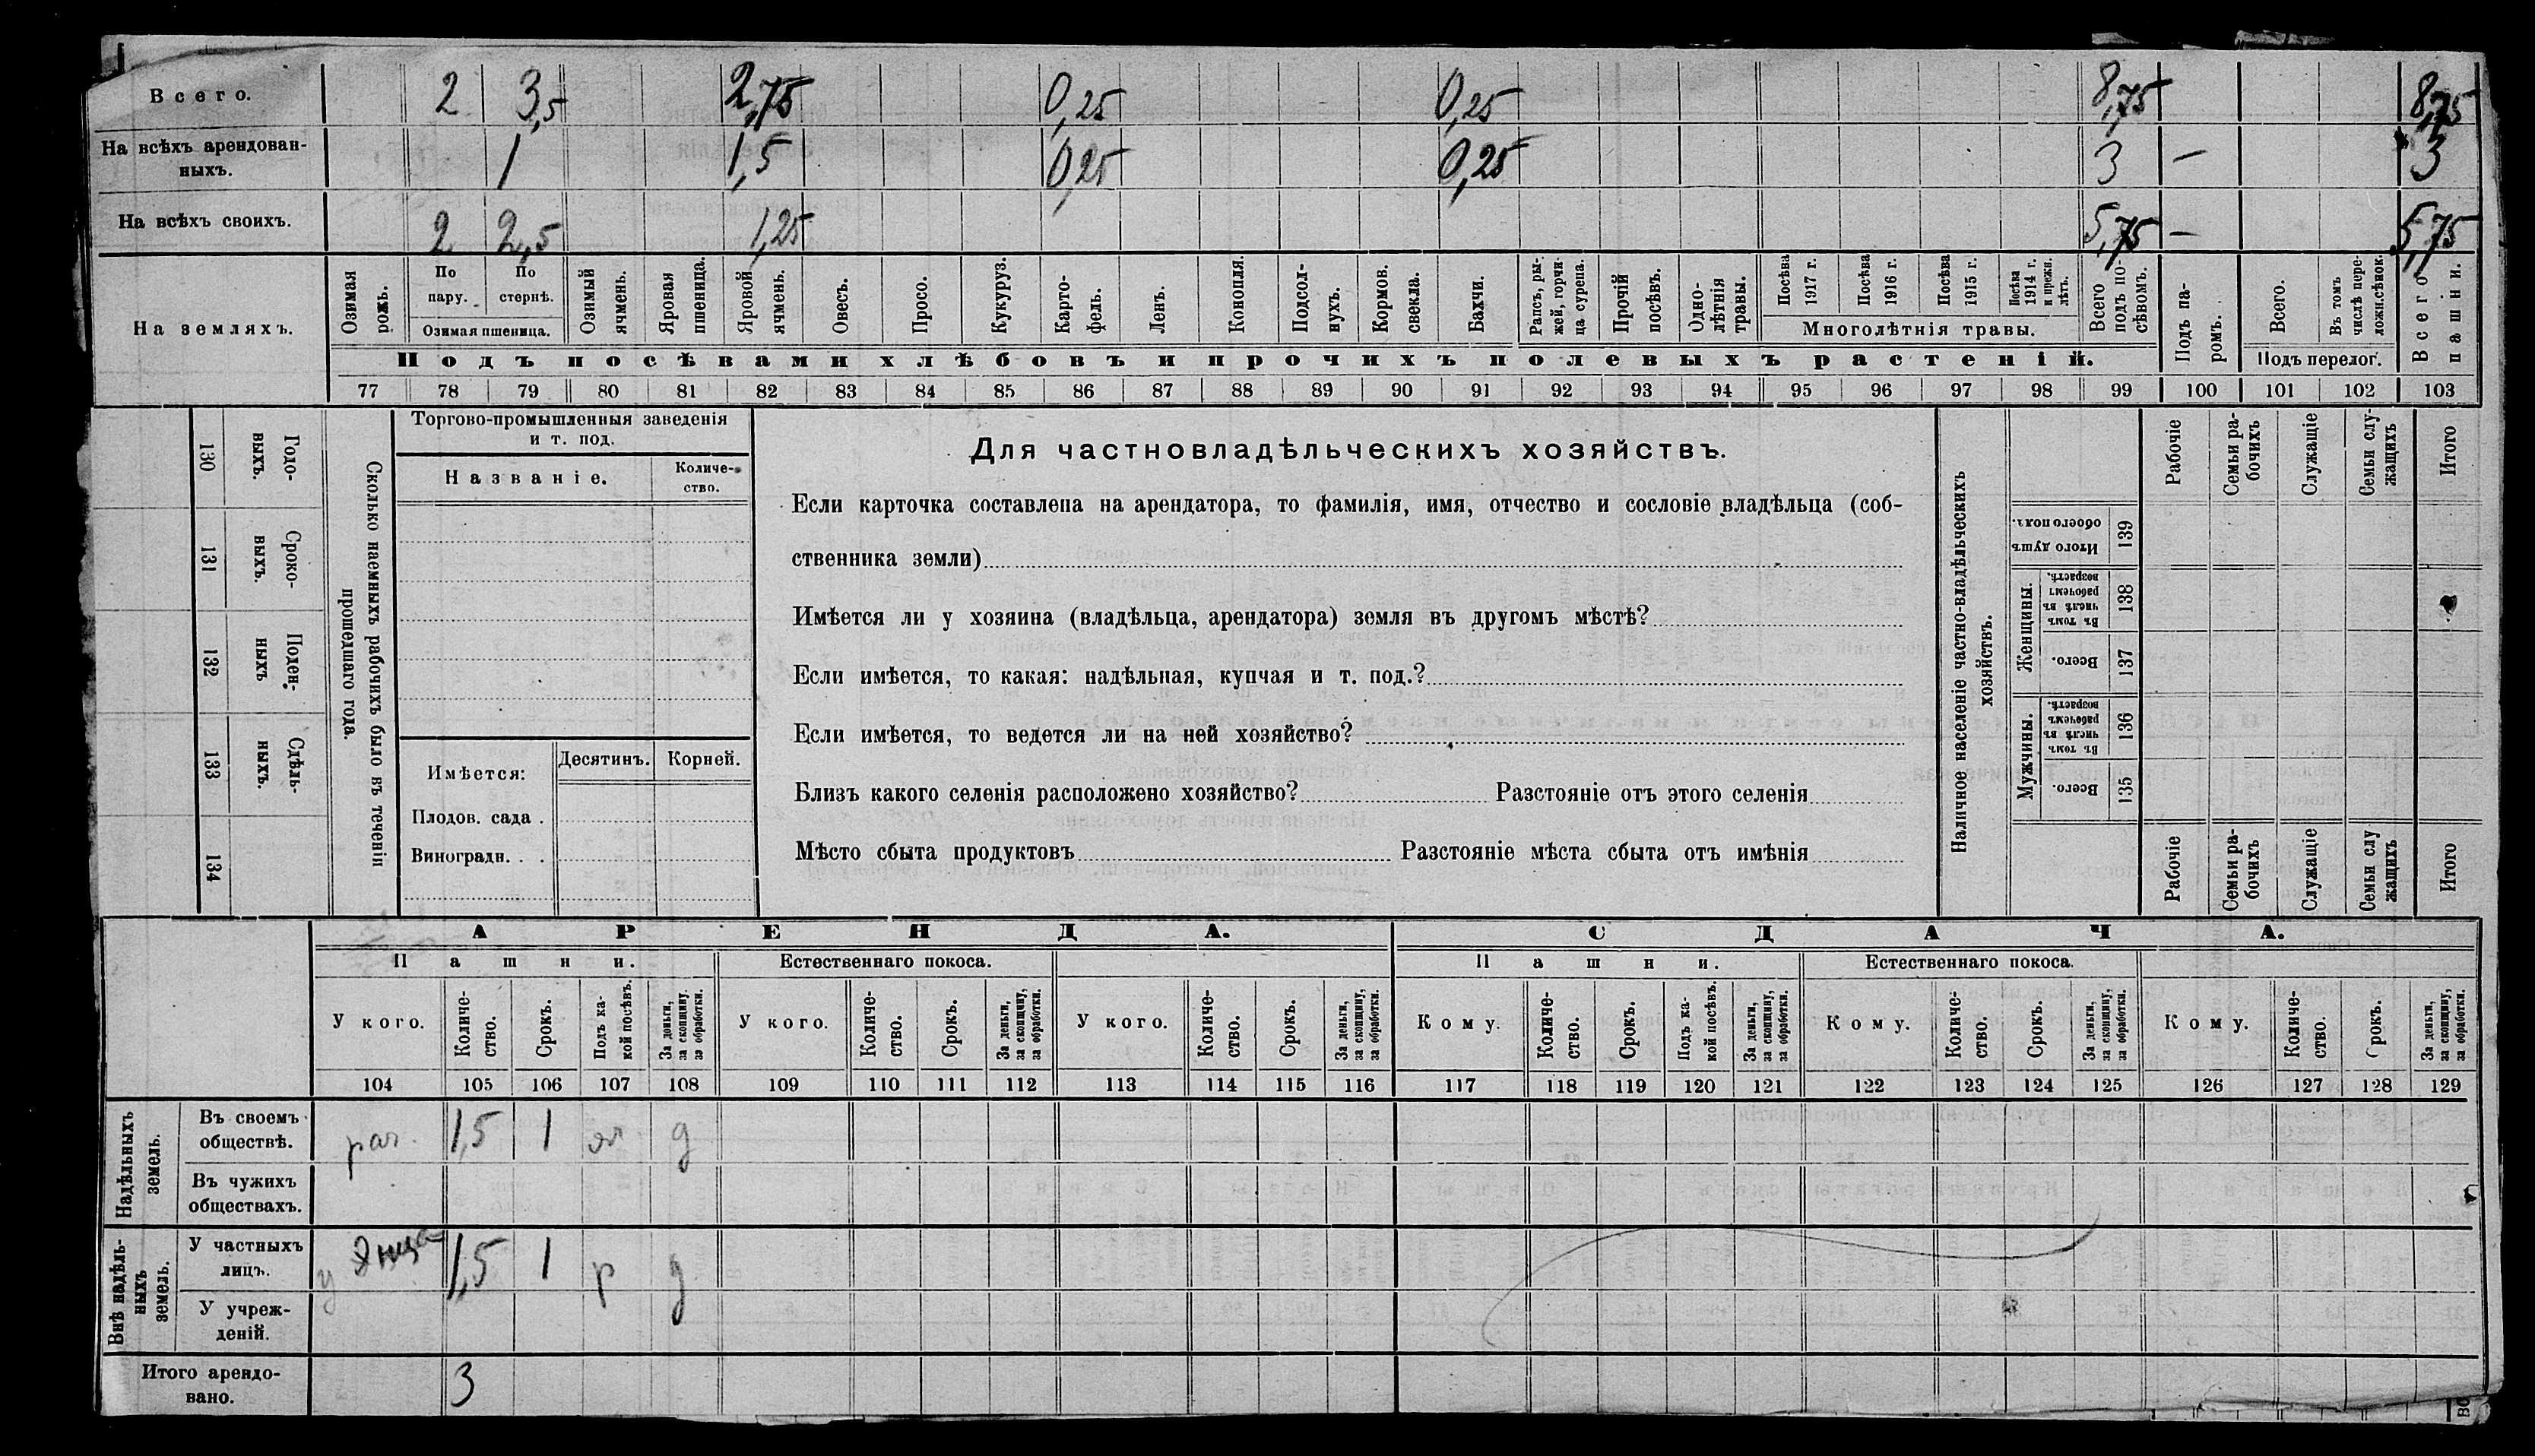 Всего. 2 3,5 2,75 0,25 0,25 8,75 8,75
На всѣхъ арендован-
ныхъ. 1 1,5 0,25 0,25 3 — 3
На всѣхъ своихъ. 2 2,5 1,25 5,75 — 5,75
На земляхъ.
Озимая рожь.
По пару.
По стернѣ.
Озимая пшеница.
Озимый ячмень.
Яровая пшеница.
Яровой ячмень.
Овесъ.
Просо.
Кукуруз.
Карто-
фель.
Ленъ.
Конопля.
Подсол-
нухъ.
Кормов.
свекла.
Бахчи.
Рапсъ, ры-
жей, горчи-
ца сурепа.
Прочій
посѣвъ.
Одно-
лѣтнія
травы.
Посѣва
1917 г.
Посѣва
1916 г.
Посѣва
1915 г.
Посѣва
1914 г.
и прежн.
лѣтъ.
Многолѣтнія травы.
Всего
подъ по-
сѣвомъ.
Подъ па-
ромъ.
Всего.
Въ томъ
числѣ пере-
ложн.сѣнок.
Подъ перелог.
Всего
пашни.
Подъ посѣвами хлѣбовъ и прочихъ полевыхъ растеній.
77 78 79 80 81 82 83 84 85 86 87 88 89 90 91 92 93 94 95 96 97 98 99 100 101 102 103
130 Годо-
выхъ.
131 Сроко-
выхъ.
132 Поден-
ныхъ
133 Сдѣль-
ныхъ.
134
Сколько наемныхъ рабочихъ было въ теченіи
прошедшаго года.
Торгово-промышленныя заведенія
и т. под.
Названіе.
Количе-
ство.
Имѣется:
Десятинъ. Корней.
Плодов. сада .
Виноградн. . .
Для частновладѣльческихъ хозяйствъ.
Если карточка составлена на арендатора, то фамилія, имя, отчество и сословіе владѣльца (соб-
ственника земли)
Имѣется ли у хозяина (владѣльца, арендатора) земля въ другомъ мѣстѣ?
Если имѣется, то какая: надѣльная, купчая и т. под.?
Если имѣется, то ведется ли на ней хозяйство?
Близъ какого селенія расположено хозяйство? Разстояніе отъ этого селенія
Мѣсто сбыта продуктовъ Разстояніе мѣста сбыта отъ имѣнія
Наличное населеніе частно-владѣльческихъ
хозяйствъ.
Рабочіе
Семьи ра-
бочихъ
Служащіе
Семьи слу-
жащихъ
Итого
Итого душъ
обоего пола.
139
Женщины.
Въ томъ
числѣ въ
рабочемъ
возрастѣ.
138
Всего.
137
Мужчины.
Въ томъ
числѣ въ
рабочемъ
возрастѣ.
136
Всего.
135
Рабочіе
Семьи ра-
бочихъ
Служащіе
Семьи слу
жащихъ
Итого
АРЕНДА. СДАЧА.
Пашни. Естественнаго покоса. Пашни. Естественнаго покоса.
У кого.
Количе-
ство.
Срокъ.
Подъ ка-
кой посѣвъ.
За деньги,
за скопщину,
за обработки.
У кого.
Количе-
ство.
Срокъ.
За деньги,
за скопщину,
за обработки.
У кого.
Количе-
ство.
Срокъ.
За деньги,
за скопщину,
за обработки.
Кому.
Количе-
ство.
Срокъ.
Подъ ка-
кой посѣвъ.
За деньги,
за скопщину,
за обработки.
Кому.
Количе-
ство.
Срокъ.
За деньги,
за скопщину,
за обработки.
Кому.
Количе-
ство.
Срокъ.
За деньги,
за скопщину,
за обработки.
104 105 106 107 108 109 110 111 112 113 114 115 116 117 118 119 120 121 122 123 124 125 126 127 128 129
Надѣльныхъ
земель.
Въ своемъ
обществѣ. 1,5 1 д
Въ чужихъ
обществахъ.
Внѣ надѣль-
ныхъ
земель.
У частныхъ
лицъ. у 1,5 1 р д
У учреж-
деній.
Итого арендо-
вано. 3